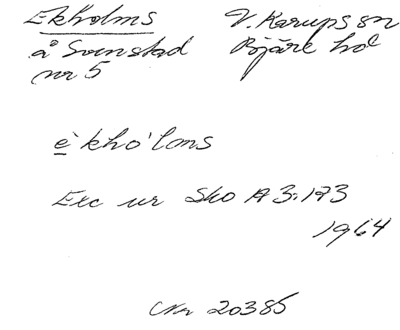 Ekholms V. Karups sn
å Svenstad Bjäre hd
nr 5
è kho'lons
Exc ur Sko A 3:173
1964
Nr 20385